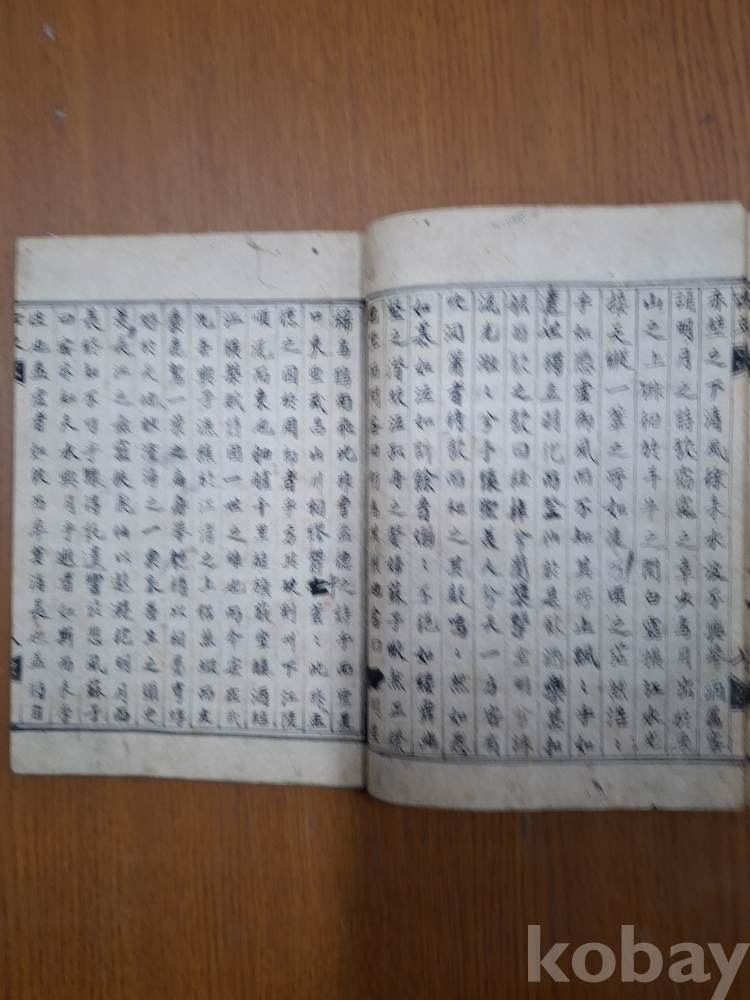 赤壁之下清風徐来水波不興挙酒属客
誦明月之詩歌窈窕之章少焉月出於東
山之上徘徊於斗牛之間白露横江水光
接天縱一葦之所如凌万頃之茫然浩〻
乎如憑虚御風而不知其所止飄〻乎如
遺世獨立羽化而登仙於是飲酒樂甚扣
舷而歌之歌曰桂棹兮蘭槳擊空明兮泝
流光渺〻兮予懷望美人兮天一方客有
吹洞簫者倚歌而和之其聲嗚〻然如怨
如慕如泣如訴餘音嫋〻不絶如縷舞幽
壑之潜蛟泣孤舟之嫠婦蘇子愀然正襟
危坐而問客曰何為其然也客曰月明星
稀烏鵲南飛此非曹孟德之詩乎西望夏
口東望武昌山川相繆鬱乎蒼〻此非孟
德之困於周郎者乎方其破荆州下江陵
順流而東也舳艫千里旌旗蔽空釃酒臨
江横槊賦詩固一世之雄也而今安在哉
况吾與子漁樵於江渚之上侣魚鰕而友
麋鹿駕一葉之扁舟擧匏樽以相屬寄蜉
蝣於天地眇滄海之一粟哀吾生之須臾
羡長江之無窮挾飛仙以遨遊抱明月而
長終知不可乎驟得託遺響於悲風蘇子
曰客亦知夫水與月乎逝者如斯而未嘗
往也盈虚者如彼而卒莫消長也盖将自
kobay